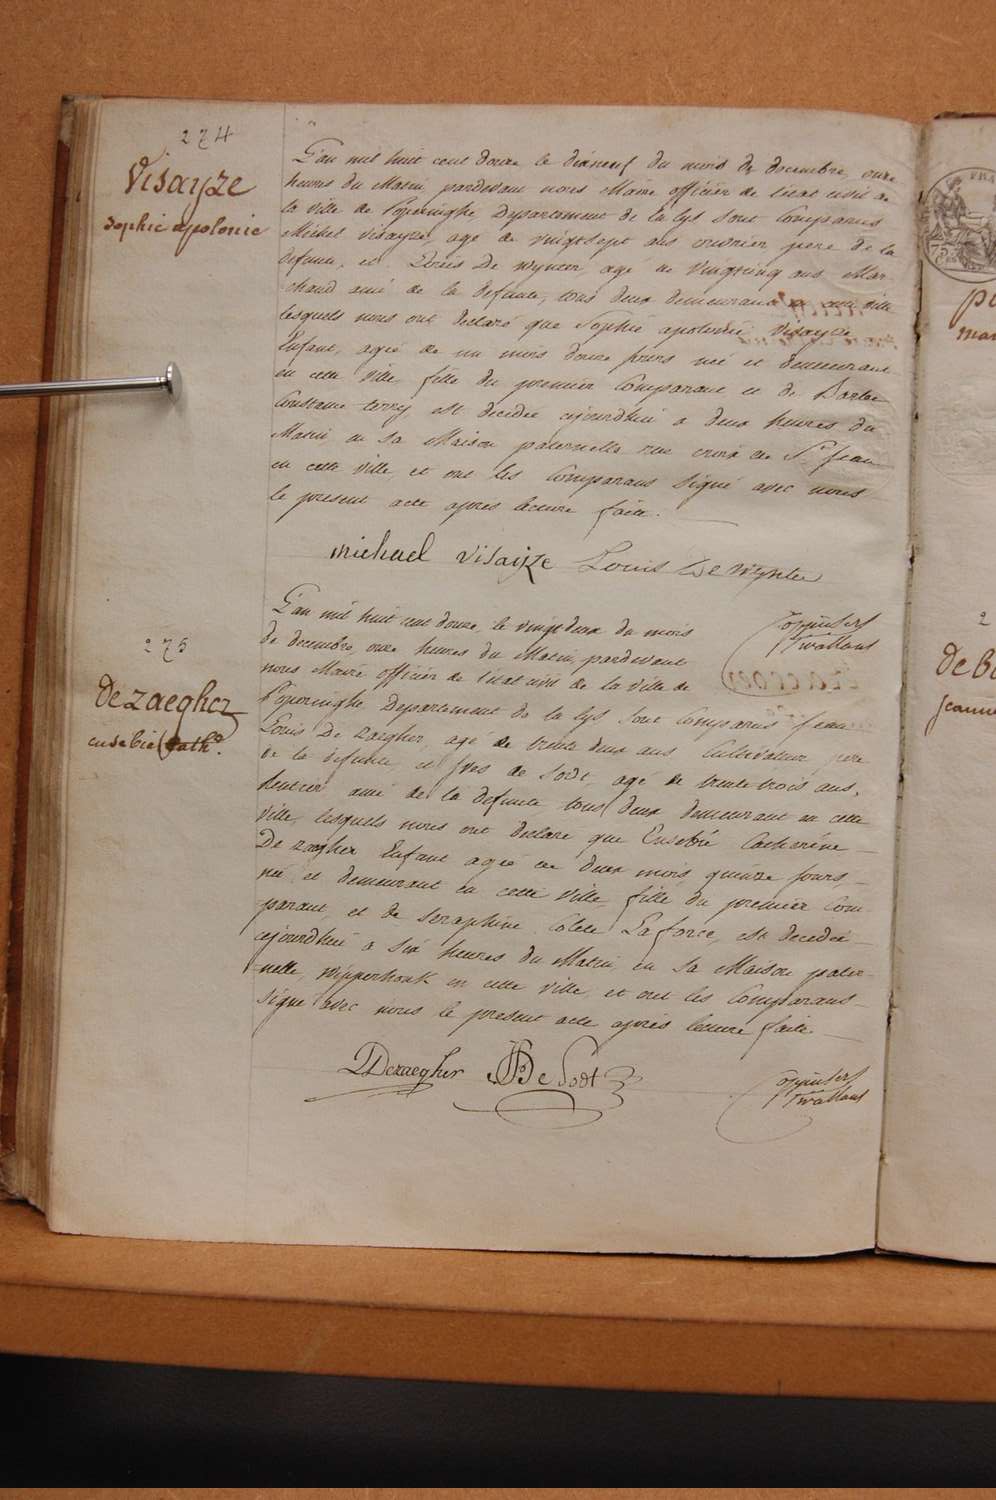 274
Visayze
Sophie apolonie
L'an mil huit cent douze le dixneuf du mois de decembre, onze
heures du Matin, pardevant nous Maire officier de l'état civil de
la ville de Poperinghe, Departement de la Lys sont Comparus
Michel Visayze, agé de vingtsept ans ouvrier pere de la
defunte, et Louis De wynter, agé de vingtcinq ans Mar
chand ami de la defunte, tous deux demeurant en cette ville
lesquels nous ont declaré que Sophie apolonie Visayze
Enfant, agée de un mois douze jours née et demeurant
en cette ville, fille du premier Comparant et de Barbe
Constance terry est decedée ajourdhui a deux heures du
Matin en sa Maison paternelle rue de St Jean
en cette ville, et ont les Comparans signé avec nous
le present acte après lecture faite.
michael visaijze Louis De wynter
275
de zaegher
eusebie Cath.
L'an mil huit cent douze, le vingtdeux du mois
de decembre, onze heures du Matin, pardevant
nous Maire officier de l'état civil de la ville de
Poperinghe Departement de la Lys sont Comparus Jean
Louis De Zaegher, agé de trente deux ans Cultivateur pere
de la defunte, et Yves de Sodt, agé de trente trois ans,
Rentier ami de la defunte, tous deux demeurant en cette
ville, lesquels nous ont declaré que Eusebie Catherine
De zaegher Enfant agée de deux mois quinze jours,
née et demeurant en cette ville fille du premier Com
parant, et de Seraphine Colete Laforce, est decedée
ajourdhui a six heures du Matin en sa Maison pater
nelle, wipperhoek en cette ville et ont les Comparans
signé avec nous le present acte après lecture faite.
Dezaegher De Sodt
FRA
75
2
de B
jeanne
mar